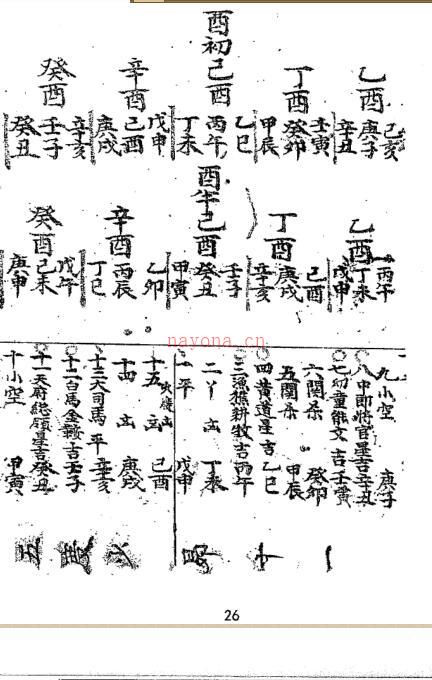 酉初
乙酉
己亥
庚子
辛丑
丁酉
壬寅
癸卯
甲辰
己酉
乙巳
丙午
丁未
辛酉
戊申
己酉
庚戌
癸酉
辛亥
壬子
癸丑
酉午
乙酉
丙午
丁未
戊申
丁酉
己酉
庚戌
辛亥
己酉
壬子
癸丑
甲寅
辛酉
乙卯
丙辰
丁巳
癸酉
戊午
己未
庚申
九小空 庚子
八中郎將官星吉 辛丑
七幼童能文吉 壬寅
六関杀 癸卯
五関杀 甲辰
四黄道星吉 乙巳
三漁樵耕牧吉 丙午
二丫 丁未
一平 戊申
十五 己酉
十四 庚戌
十三大司馬平 辛亥
十二白馬金鞍吉 壬子
十一天府總領星吉 癸丑
十小空 甲寅
nayona.cn
26